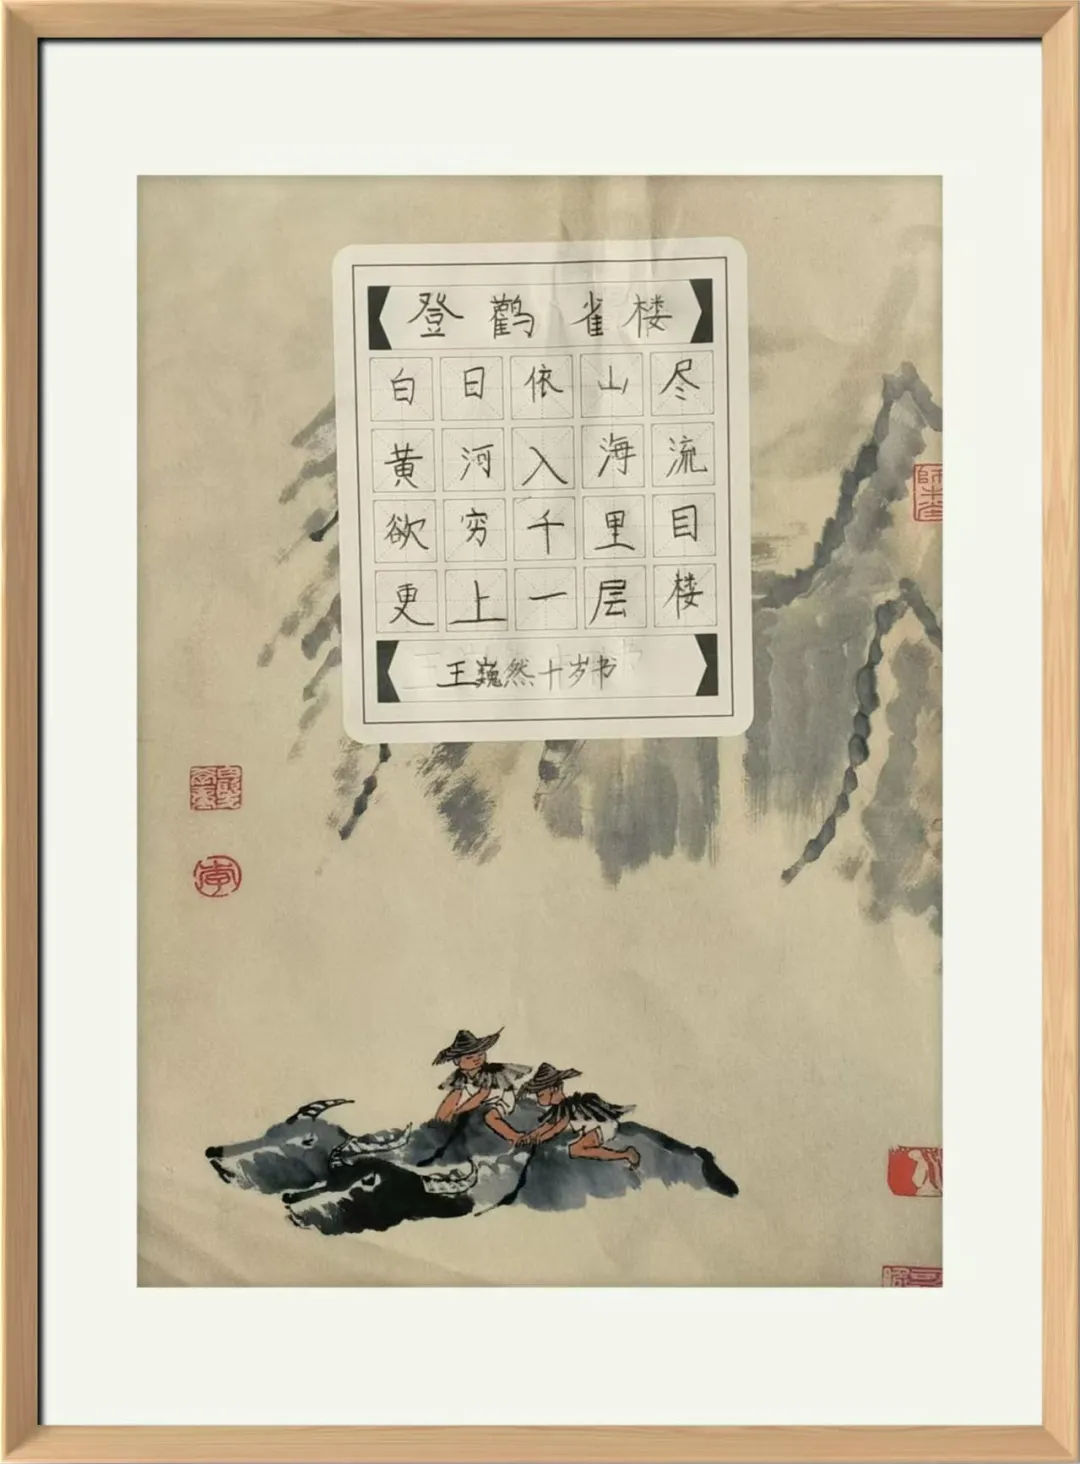 登鹳雀楼
白日依山尽
黄河入海流
欲穷千里目
更上一层楼
王巍然十岁书